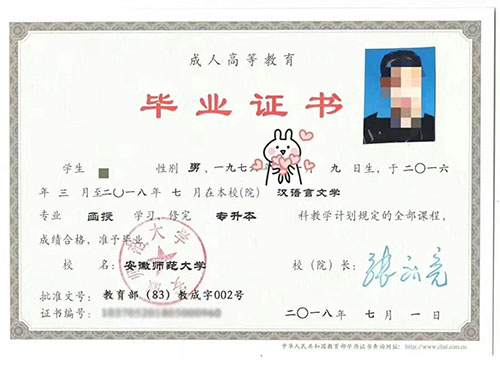 成人高等教育
毕业证书
学生 性别 男，一九七 九日生，于二〇一六
年 三 月至二〇一八年 七 月在本校(院) 汉语言文学
专业 函授 学习，修完 专升本 科教学计划规定的全部课程，
成绩合格，准予毕业。
校 名：安徽师范大学 校（院）长：
批准文号：教育部（83）教成字002号
证书编号：
二〇一八年 七 月 一 日
中华人民共和国教育部学历证书查询网址：http://www.chsi.com.cn